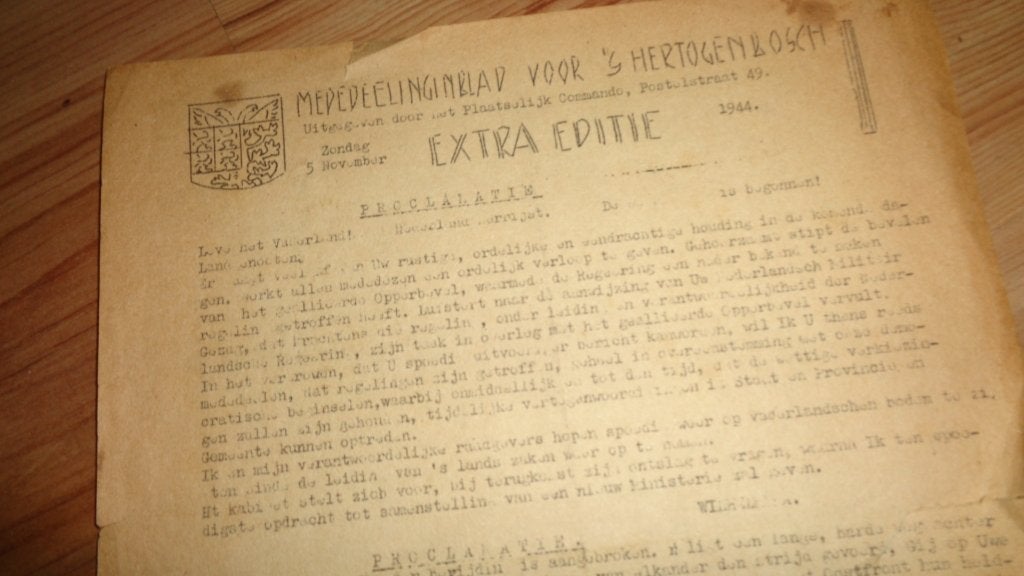 MEDEDEELINGINBLAD VOOR 'S HERTOGENBOSCH
Uitgegeven door het Plaatselijk Commando, Postelstraat 49.
Zondag
5 November EXTRA EDITIE 1944.
PROCLALATIE
Leve het Vaderland! Nederland verrijst. De is begonnen!
Landgenooten,
Er veel af van Uw rustige, ordelijke en eendrachtige houding in de komende da-
gen. Werkt allen mede dezen een ordelijk verloop te geven. Gehoorzaamt stipt de bevelen
van het geallieerde Opperbevel, waarmede de Regeering een nader bekend te maken
regeling getroffen heeft. Luistert naar de aanwijzing van Uw Nederlandsch Militair
Gezag, dat krachtens die regeling, onder leiding en verantwoordelijkheid der Neder-
landsche Regeering, zijn taak in overleg met het geallieerde Opperbevel vervult.
In het vertrouwen, dat U spoedig uitvoeriger bericht kan wil ik U thans reeds
mededeelen, dat regelingen zijn getroffen, geheel in overeenstemming met onze demo-
cratische beginselen, waarbij onmiddellijk en tot den tijd, dat de wettige verkiezin-
gen zullen zijn gehouden, tijdelijke vertegenwoordigingen in Staat en Provincie en
Gemeente kunnen optreden.
Ik en mijn verantwoordelijke raadgevers hopen spoedig weer op vaderlandschen bodem te zijn
ten einde de leiding van 's lands zaken weer op te nemen.
Het kabinet stelt zich voor, bij terugkomst zijn ontslag te vragen, waarna Ik ten spoe-
digste opdracht tot samenstelling van een nieuw Ministerie zal geven.
WILHELMINA.
PROCLALATIE.
is aangebroken. N ligt een lange, harde weg achter
elkander den strijd gevoerd, Gij op Uwe
Oostfront hun held-